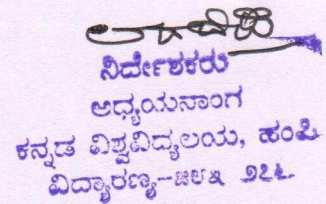 ನಿರ್ದೇಶಕರು
ಅಧ್ಯಯನಾಂಗ
ಕನ್ನಡ ವಿಶ್ವವಿದ್ಯಲಯ, ಹಂಪಿ
ವಿದ್ಯಾರಣ್ಯ-೫೮೩ ೨೭೬.